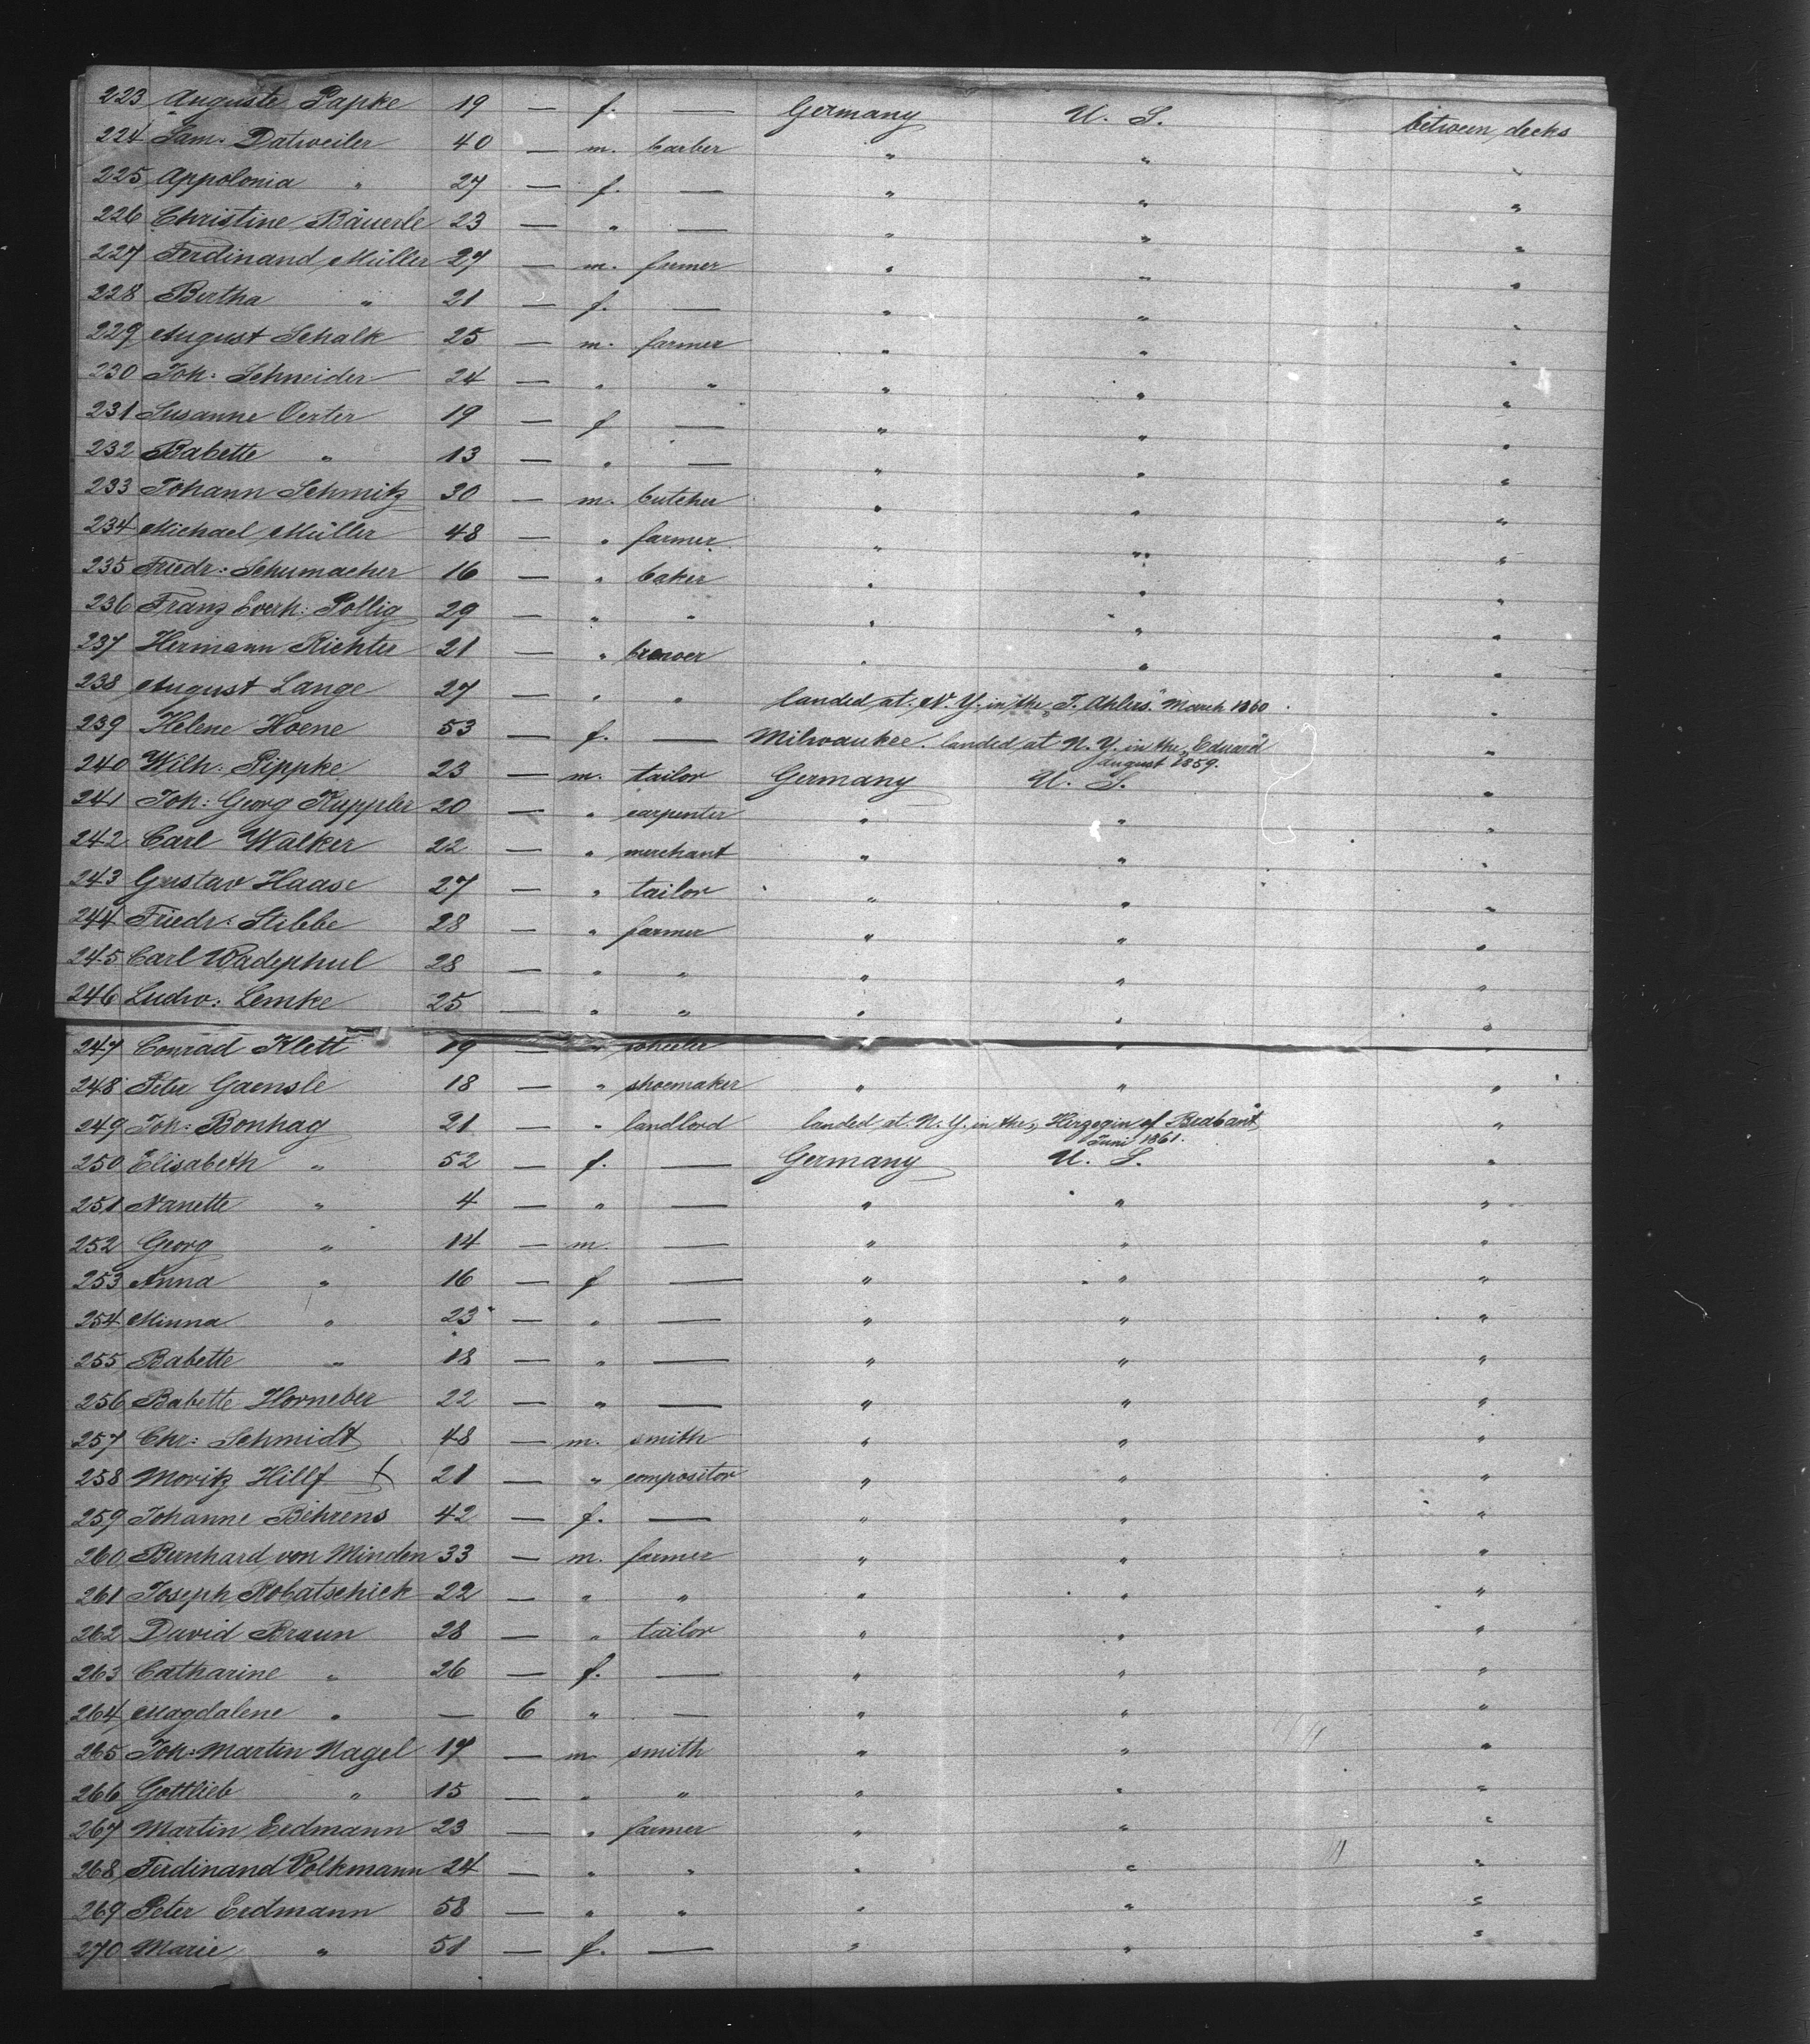 223 Auguste Papke 19 — f. — Germany U. S. between decks
224 Sam. Datweiler 40 — m. barber " " "
225 Appolonia " 27 — f. — " " "
226 Christine Bäuerle 23 — " — " " "
227 Ferdinand Müller 27 — m. farmer " " "
228 Bertha " 21 — f. — " " "
229 August Schalk 25 — m. farmer " " "
230 Joh: Schneider 24 — " " " " "
231 Susanne Oerter 19 — f — " " "
232 Babette " 13 — " — " " "
233 Johann Schmitz 30 — m. butcher " " "
234 Michael Müller 48 — " farmer " " "
235 Friedr: Schumacher 16 — " baker " " "
236 Franz Everh: Pollig 29 — " " " " "
237 Hermann Richter 21 — " brewer " " "
238 August Lange 27 — " " landed at N. Y. in the "J. Ahlers" March 1860 "
239 Helene Hoene 53 — f. — Milwaukee. landed at N. Y. in the "Eduard" "
August 1859.
240 Wilh: Pippke 23 — m. tailor Germany U. S. "
241 Joh: Georg Kuppler 20 — " carpenter " " "
242 Carl Walker 22 — " merchant " " "
243 Gustav Haase 27 — " tailor " " "
244 Friedr: Stibbe 28 — " farmer " " "
245 Carl Wadephul 28 — " " " " "
246 Ludw: Lemke 25 — " " " " "
247 Conrad Klett 19 — " " "
248 Peter Gaensle 18 — " shoemaker " " "
249 Joh: Bonhag 21 — " landlord landed at N. Y. in the "Herzogin of Brabant" "
Juni 1861.
250 Elisabeth " 52 — f. — Germany U. S. "
251 Nanette " 4 — " — " " "
252 Georg " 14 — m. — " " "
253 Anna " 16 — f — " " "
254 Minna " 23 — " — " " "
255 Babette " 18 — " — " " "
256 Babette Horneber 22 — " — " " "
257 Chr: Schmidt 48 — m. smith " " "
258 Moritz Hillf 21 — " compositor " " "
259 Johanne Behrens 42 — f. — " " "
260 Bernhard von Minden 33 — m. farmer " " "
261 Joseph Robatschick 22 — " " " " "
262 David Braun 28 — " tailor " " "
263 Catharine " 26 — f. — " " "
264 Magdalene " — 6 " — " " "
265 Joh: Martin Nagel 17 — m smith " " "
266 Gottlieb " 15 — " " " " "
267 Martin Erdmann 23 — " farmer " " "
268 Ferdinand Volkmann 24 — " " " " "
269 Peter Erdmann 58 — " " " " "
270 Marie " 51 — f. — " " "